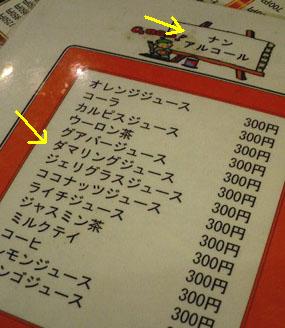 ナン
アルコール
オレンジジュース 300円
コーラ 300円
カルピスジュース 300円
ウーロン茶 300円
グアバージュース 300円
ダマリングジュース 300円
ジェリグラスジュース 300円
ココナッツジュース 300円
ライチジュース 300円
ジャスミン茶 300円
ミルクティ 300円
コーヒ
モンジュース
ンゴジュース